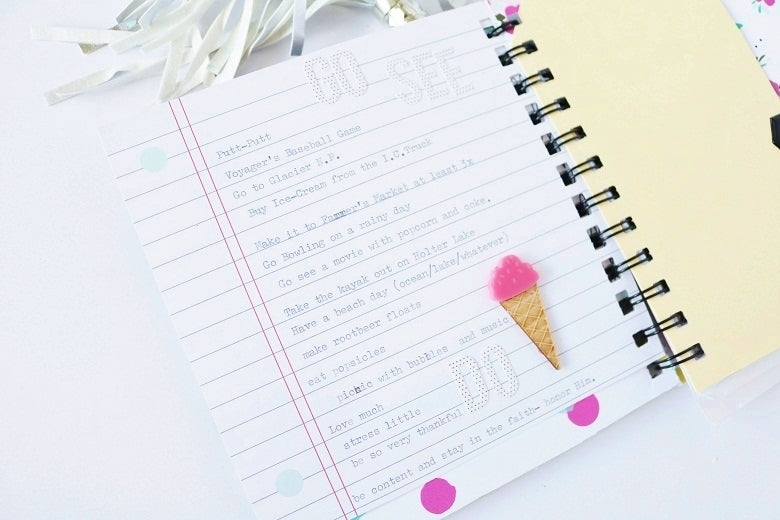 GO SEE
Putt-Putt
Voyager's Baseball Game
Go to Glacier N.P.
Buy Ice-Cream from the I.C.Truck
Make it to Farmer's Market at least 3x
Go Bowling on a rainy day
Go see a movie with popcorn and coke.
Take the kayak out on Holter Lake
Have a beach day (ocean/lake/whatever)
make rootbeer floats
eat popsicles
picnic with bubbles and music
DO
Love much
stress little
be so very thankful
be content and stay in the faith- honor Him.